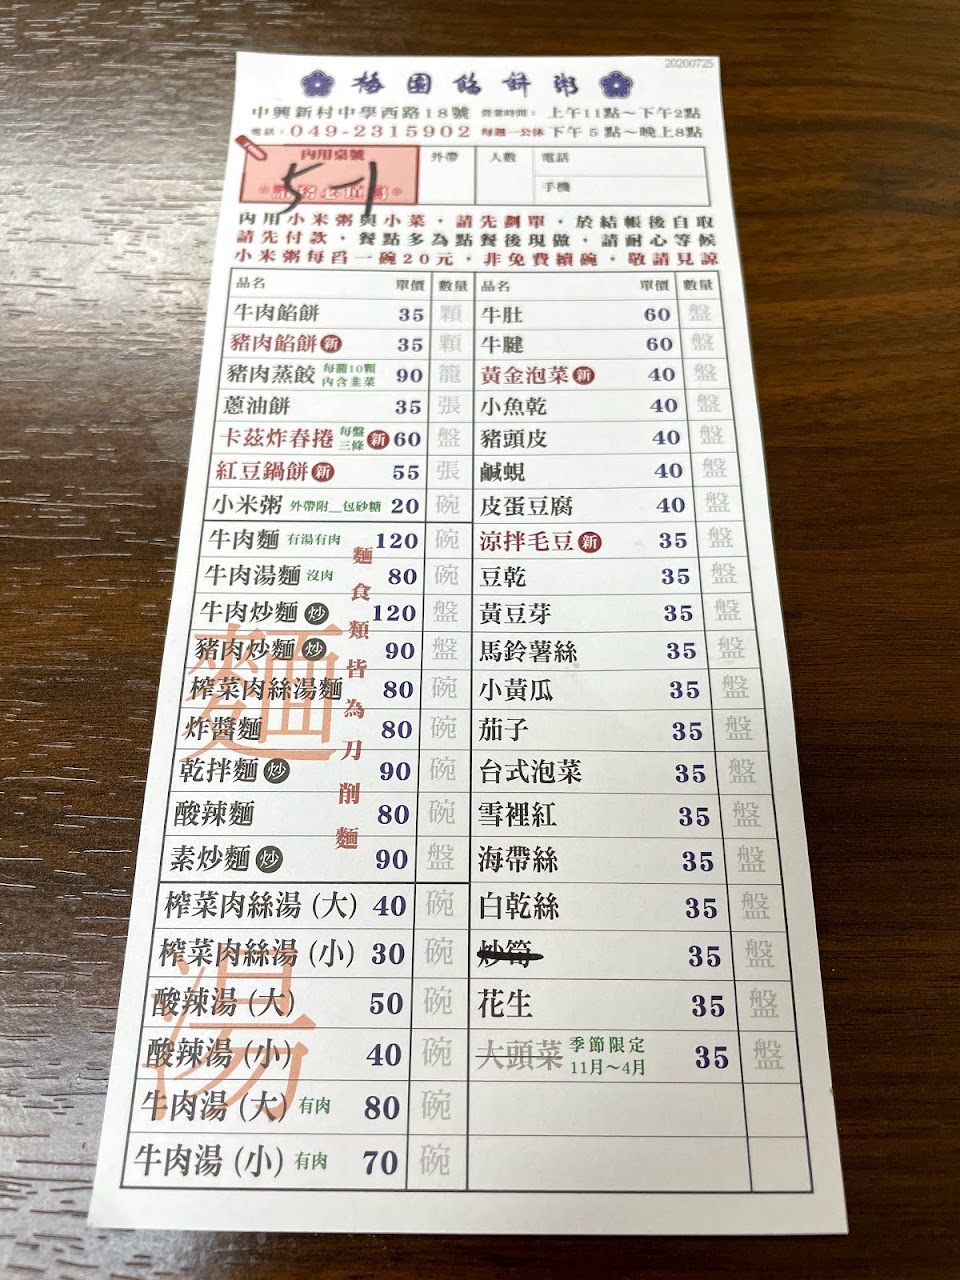 20200725
梅園餡餅粥
中興新村中學西路18號 營業時間: 上午11點~下午2點
電話:049-2315902 每週一公休 下午5點~晚上8點
內用桌號 外帶 人數 電話
5-1
手機
內用小米粥與小菜,請先劃單,於結帳後自取
請先付款,餐點多為點餐後現做,請耐心等候
小米粥每舀一碗20元,非免費續碗,敬請見諒
品名 單價 數量 品名 單價 數量
牛肉餡餅 35 顆 牛肚 60 盤
豬肉餡餅 新 35 顆 牛腱 60 盤
豬肉蒸餃 每籠10顆 內含韭菜 90 籠 黃金泡菜 新 40 盤
蔥油餅 35 張 小魚乾 40 盤
卡茲炸春捲 每盤三條 新 60 盤 豬頭皮 40 盤
紅豆鍋餅 新 55 張 鹹蜆 40 盤
小米粥 外帶附__包砂糖 20 碗 皮蛋豆腐 40 盤
牛肉麵 有湯有肉 120 碗 涼拌毛豆 新 35 盤
牛肉湯麵 沒肉 80 碗 豆乾 35 盤
牛肉炒麵 炒 120 盤 黃豆芽 35 盤
豬肉炒麵 炒 90 盤 馬鈴薯絲 35 盤
榨菜肉絲湯麵 80 碗 小黃瓜 35 盤
炸醬麵 80 碗 茄子 35 盤
乾拌麵 炒 90 碗 台式泡菜 35 盤
酸辣麵 80 碗 雪裡紅 35 盤
素炒麵 炒 90 盤 海帶絲 35 盤
麵
麵食類皆為刀削麵
榨菜肉絲湯 (大) 40 碗 白乾絲 35 盤
榨菜肉絲湯 (小) 30 碗 炒筍 35 盤
酸辣湯 (大) 50 碗 花生 35 盤
酸辣湯 (小) 40 碗 大頭菜 季節限定 11月~4月 35 盤
牛肉湯 (大) 有肉 80 碗
牛肉湯 (小) 有肉 70 碗
湯